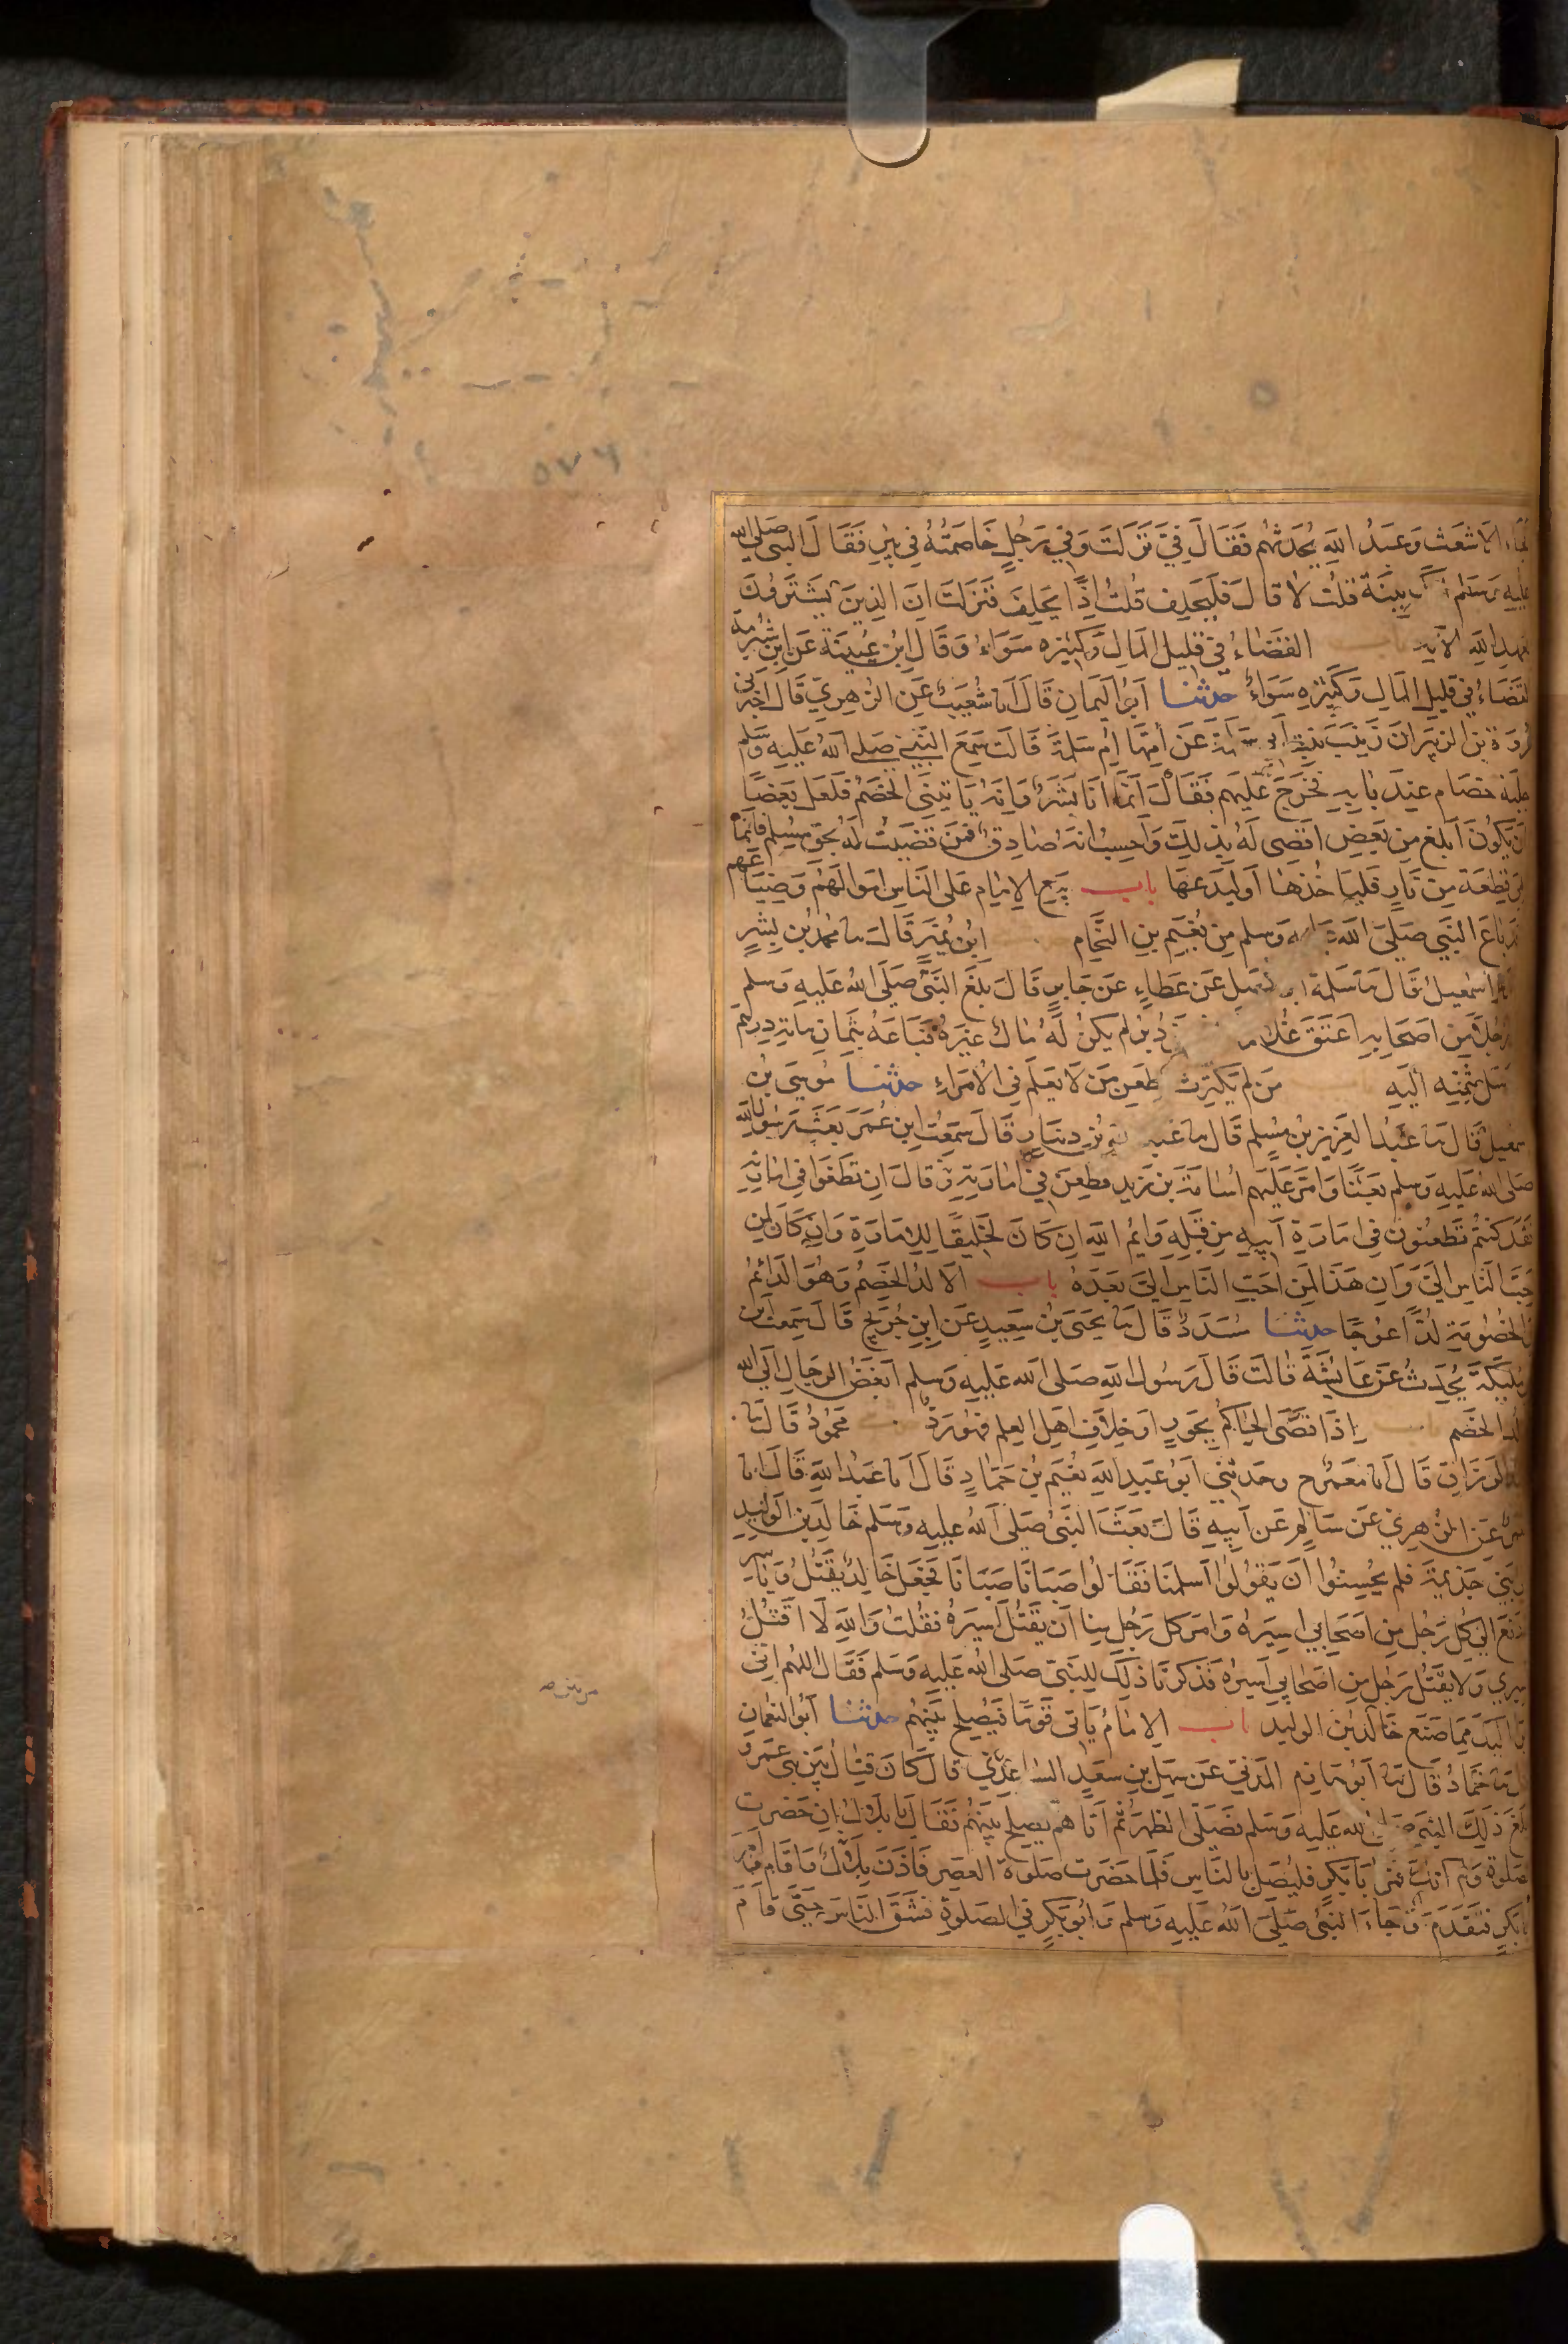 ٥٧٦
فجاء الاشعث وعبد الله يحدثهم فقال فيّ نزلت وفي رجل خاصمته في بير فقال النبي صلى الله
عليه وسلم بينة قلت لا قال فليحلف قلت اذًا يحلف فنزلت ان الذين يشترون
بعهد الله الاية القضاء في قليل المال وكثيره سواء وقال ابن عيينة عن ابن شبرمة
القضاء في قليل المال وكثيره سواء حدثنا ابو اليمان قال انا شعيب عن الزهري قال اخبرني
عروة بن الزبير ان زينب بنت ابي سلمة عن امها ام سلمة قالت سمع النبي صلى الله عليه وسلم
جلبة خصام عند بابه فخرج عليهم فقال انما انا بشر وانه ياتيني الخصم فلعل بعضًا
ان يكون ابلغ من بعض اقضى له بذلك واحسب انه صادق فمن قضيت له بحق مسلم فانما
هي قطعة من نار فلياخذها او ليدعها باب بيع الامام على الناس اموالهم وضياعهم
قد باع النبي صلى الله عليه وسلم من نعيم بن النحام ابن نمير قال نا محمد بن بشر
نا اسمعيل قال نا سلمة بن كهيل عن عطاء عن جابر قال بلغ النبي صلى الله عليه وسلم
ان رجلا من اصحابه اعتق غلاما دبر لم يكن له مال غيره فباعه بثمان ماية درهم
ارسل بثمنه اليه من لم يكترث بطعن من لا يعلم في الامراء حدثنا موسى بن
اسمعيل قال نا عبد العزيز بن مسلم قال نا عبد الله بن دينار قال سمعت ابن عمر بعث رسول الله
صلى الله عليه وسلم بعثًا وامر عليهم اسامة بن زيد فطعن في امارته وقال ان تطعنوا في امارته
فقد كنتم تطعنون في امارة ابيه من قبله وايم الله ان كان لخليقًا للامارة وان كان لمن
احب الناس الي وان هذا لمن احب الناس الي بعده باب الالد الخصم وهو الدائم
في الخصومة لدًا عوجًا حدثنا مسدد قال نا يحيى بن سعيد عن ابن جريج قال سمعت ابن
ابي مليكة يحدث عن عائشة قالت قال رسول الله صلى الله عليه وسلم ابغض الرجال الى الله
الالد الخصم اذا قضى الحاكم بجور او خلاف اهل العلم فهو رد محمود قال نا
عبد الرزاق قال انا معمر ح وحدثني ابو عبد الله نعيم بن حماد قال انا عبد الله قال انا
معمر عن الزهري عن سالم عن ابيه قال بعث النبي صلى الله عليه وسلم خالد بن الوليد
الى بني جذيمة فلم يحسنوا ان يقولوا اسلمنا فقالوا صبانا صبانا فجعل خالد يقتل وياسر
ودفع الى كل رجل من اصحابي اسيره وامر كل رجل منا ان يقتل اسيره فقلت والله لا اقتل
اسيري ولا يقتل رجل من اصحابي اسيره فذكرنا ذلك للنبي صلى الله عليه وسلم فقال اللهم اني
ابرا اليك مما صنع خالد بن الوليد باب الامام ياتي قومًا فيصلح بينهم حدثنا ابو النعمان
قال نا حماد قال نا ابو حازم المدني عن سهل بن سعد الساعدي قال كان قتال بين بني عمرو
فبلغ ذلك النبي صلى الله عليه وسلم فصلى الظهر ثم اتاهم يصلح بينهم فقال يا بلال ان حضرت
الصلوة ولم آتك فمر ابا بكر فليصل بالناس فلما حضرت صلوة العصر فاذن بلال واقام فامر
ابا بكر فتقدم وجاء النبي صلى الله عليه وسلم وابو بكر في الصلوة فشق الناس حتى قام